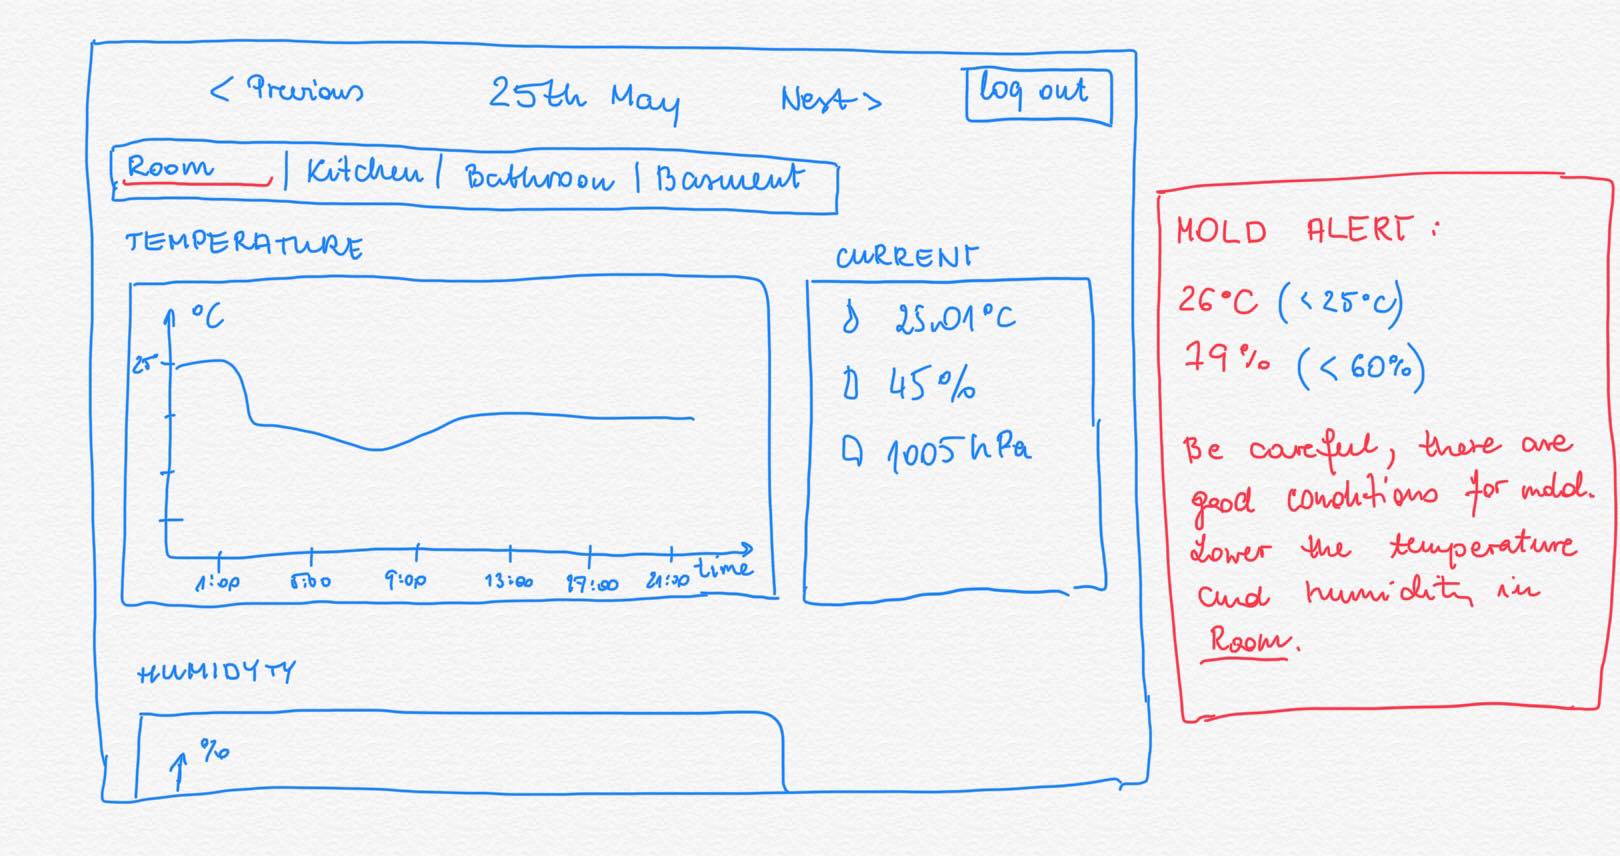 < Previous 25th May Next > log out
Room | Kitchen | Bathroom | Basment
TEMPERATURE
CURRENT
°C
25
1:00 5:00 9:00 13:00 17:00 21:00 time
25.01°C
45%
1005 hPa
HUMIDYTY
%
MOLD ALERT:
26°C (<25°C)
79% (<60%)
Be careful, there are
good conditions for mold.
Lower the temperature
and humidity in
Room.